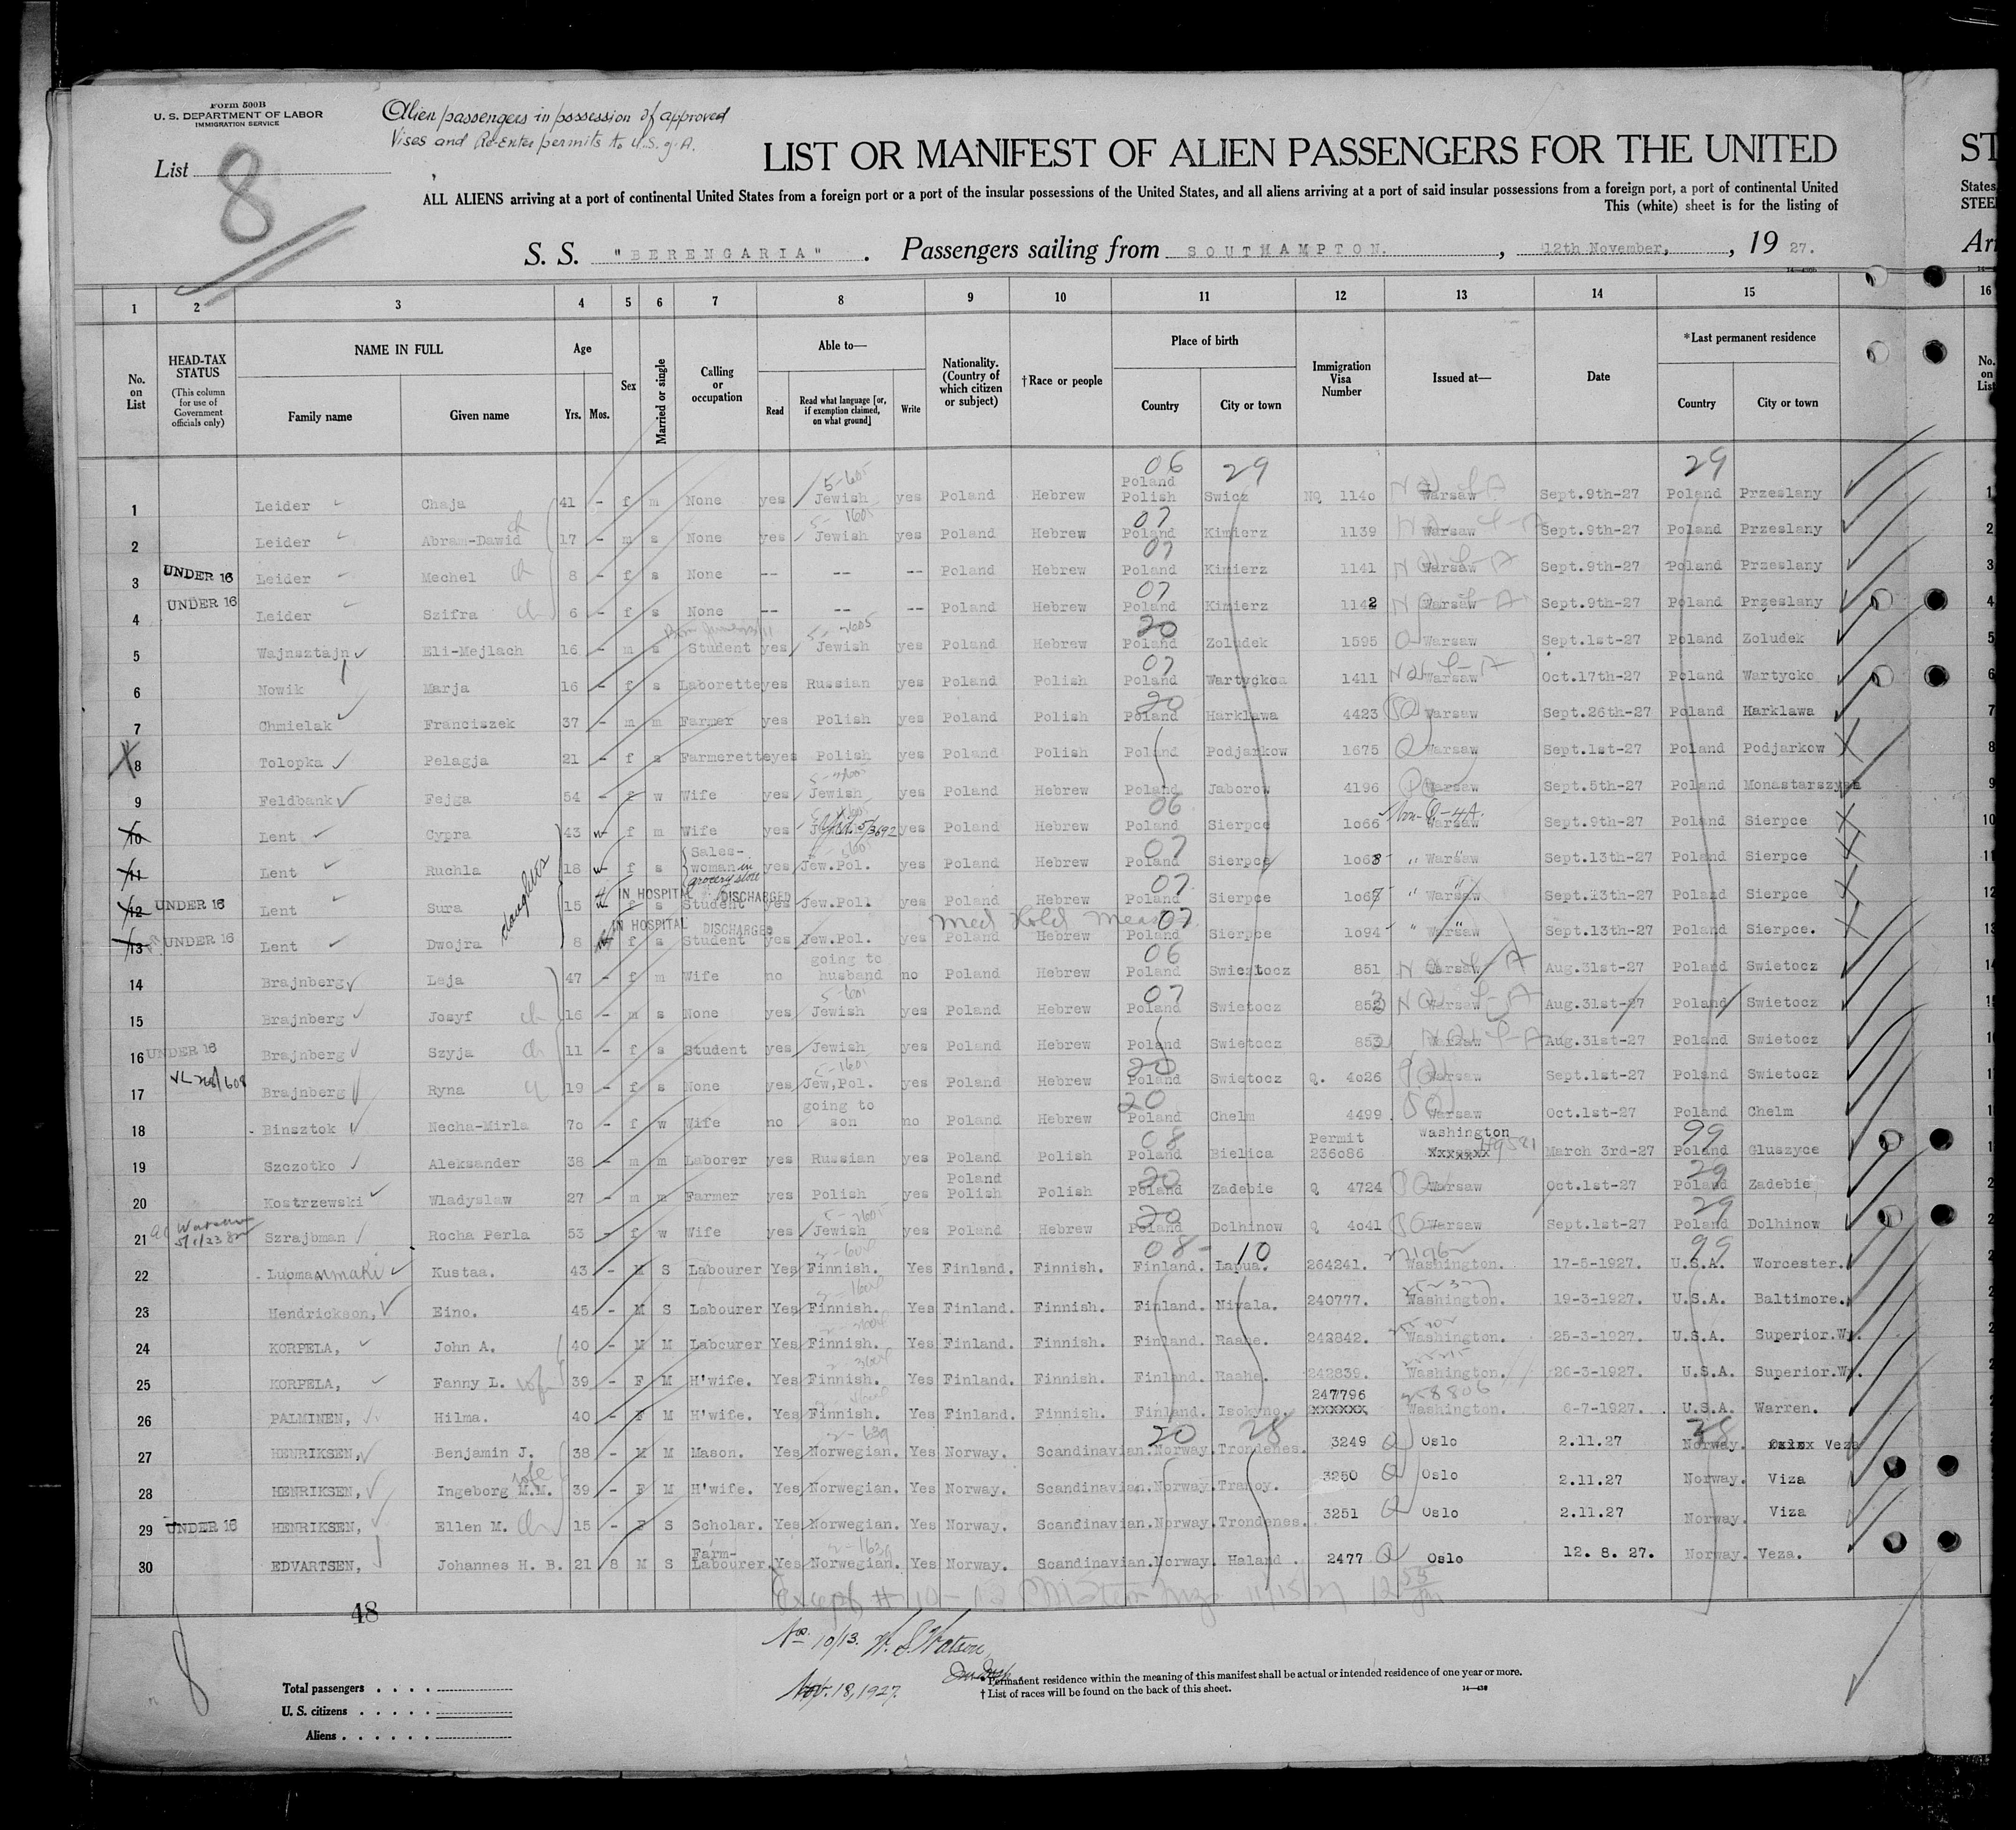 Form 500B
U. S. DEPARTMENT OF LABOR
IMMIGRATION SERVICE
Alien passengers in possession of approved
Visas and Re-Enter permits to U.S. of A.
List 8
LIST OR MANIFEST OF ALIEN PASSENGERS FOR THE UNITED
ST
ALL ALIENS arriving at a port of continental United States from a foreign port or a port of the insular possessions of the United States, and all aliens arriving at a port of said insular possessions from a foreign port, a port of continental United
States
This (white) sheet is for the listing of
STEE
S. S. "BERENGARIA". Passengers sailing from SOUTHAMPTON. , 12th November, , 19 27.
Arr
1 2 3 4 5 6 7 8 9 10 11 12 13 14 15 16
No. on List
HEAD-TAX STATUS (This column for use of Government officials only)
NAME IN FULL Family name Given name
Age Yrs. Mos.
Sex
Married or single
Calling or occupation
Able to— Read Read what language [or, if exemption claimed, on what ground] Write
Nationality. (Country of which citizen or subject)
†Race or people
Place of birth Country City or town
Immigration Visa Number
Issued at—
Date
*Last permanent residence Country City or town
No. on List
06 29 29
1 Leider Chaja 41 - f m None yes Jewish yes Poland Hebrew Poland Polish Swicz NQ 1140 Warsaw Sept.9th-27 Poland Przeslany 1
2 Leider Abram-Dawid 17 - m s None yes Jewish yes Poland Hebrew 07 Poland Kimierz 1139 Warsaw Sept.9th-27 Poland Przeslany 2
3 UNDER 16 Leider Mechel 8 - f s None -- -- -- Poland Hebrew 07 Poland Kimierz 1141 Warsaw Sept.9th-27 Poland Przeslany 3
4 UNDER 16 Leider Szifra 6 - f s None -- -- -- Poland Hebrew 07 Poland Kimierz 1142 Warsaw Sept.9th-27 Poland Przeslany 4
5 Wajnsztajn Eli-Mejlach 16 - m s Student yes Jewish yes Poland Hebrew 20 Poland Zoludek 1595 Q Warsaw Sept.1st-27 Poland Zoludek 5
6 Nowik Marja 16 - f s Laborette yes Russian yes Poland Polish 07 Poland Wartyckca 1411 Warsaw Oct.17th-27 Poland Wartycko 6
7 Chmielak Franciszek 37 - m m Farmer yes Polish yes Poland Polish 20 Poland Harklawa 4423 Warsaw Sept.26th-27 Poland Harklawa 7
8 Tolopka Pelagja 21 - f s Farmerette yes Polish yes Poland Polish Poland Podjarkow 1675 Q Warsaw Sept.1st-27 Poland Podjarkow 8
9 Feldbank Fejga 54 - f w Wife yes Jewish yes Poland Hebrew Poland Jaborow 4196 Warsaw Sept.5th-27 Poland Monastarszyna 9
10 Lent Cypra 43 f m Wife yes yes Poland Hebrew 06 Poland Sierpce 1066 Non-Q-4A. Warsaw Sept.9th-27 Poland Sierpce 10
11 Lent Ruchla 18 f s Sales-woman in grocery store yes Jew.Pol. yes Poland Hebrew 07 Poland Sierpce 1068 " Warsaw Sept.13th-27 Poland Sierpce 11
daughters
12 UNDER 16 Lent Sura 15 f s IN HOSPITAL DISCHARGED Student yes Jew.Pol. yes Poland Hebrew 07 Poland Sierpce 1067 " Warsaw Sept.13th-27 Poland Sierpce 12
Med Hold Meas
13 UNDER 16 Lent Dwojra 8 f s IN HOSPITAL DISCHARGED Student yes Jew.Pol. yes Poland Hebrew 07 Poland Sierpce 1094 " Warsaw Sept.13th-27 Poland Sierpce. 13
14 Brajnberg Laja 47 - f m Wife no going to husband no Poland Hebrew 06 Poland Swietocz 851 Warsaw Aug.31st-27 Poland Swietocz 14
15 Brajnberg Josyf 16 - m s None yes Jewish yes Poland Hebrew 07 Poland Swietocz 852 Warsaw Aug.31st-27 Poland Swietocz
16 UNDER 16 Brajnberg Szyja 11 - f s Student yes Jewish yes Poland Hebrew Poland Swietocz 853 Warsaw Aug.31st-27 Poland Swietocz
17 Brajnberg Ryna 19 - f s None yes Jew,Pol. yes Poland Hebrew 20 Poland Swietocz Q. 4026 Warsaw Sept.1st-27 Poland Swietocz
18 Binsztok Necha-Mirla 70 - f w Wife no going to son no Poland Hebrew 20 Poland Chelm 4499 Warsaw Oct.1st-27 Poland Chelm
19 Szczotko Aleksander 38 - m m Laborer yes Russian yes Poland Polish 08 Poland Bielica Permit 236086 Washington xxxxxxx March 3rd-27 99 Poland Gluszyce
20 Kostrzewski Wladyslaw 27 - m m Farmer yes Polish yes Poland Polish Polish 20 Poland Zadebie Q 4724 Warsaw Oct.1st-27 29 Poland Zadebie
21 Szrajbman Rocha Perla 53 - f w Wife yes Jewish yes Poland Hebrew 20 Poland Dolhinow Q 4041 Warsaw Sept.1st-27 29 Poland Dolhinow
22 Luomanmaki Kustaa. 43 - M S Labourer Yes Finnish. Yes Finland. Finnish. 08- 10 Finland. Lapua. 264241. Washington. 17-5-1927. 99 U.S.A. Worcester.
23 Hendrickson, Eino. 45 - M S Labourer Yes Finnish. Yes Finland. Finnish. Finland. Nivala. 240777. Washington. 19-3-1927. U.S.A. Baltimore.
24 KORPELA, John A. 40 - M M Labourer Yes Finnish. Yes Finland. Finnish. Finland. Raahe. 242842. Washington. 25-3-1927. U.S.A. Superior.Wy.
25 KORPELA, Fanny L. wife 39 - F M H'wife. Yes Finnish. Yes Finland. Finnish. Finland. Raahe. 242839. Washington. 26-3-1927. U.S.A. Superior.Wy.
26 PALMINEN, Hilma. 40 - F M H'wife. Yes Finnish. Yes Finland. Finnish. Finland. Isokyno. 247796 xxxxxx 258806 Washington. 6-7-1927. U.S.A. Warren.
27 HENRIKSEN, Benjamin J. 38 - M M Mason. Yes Norwegian. Yes Norway. Scandinavian. 20 Norway. 28 Trondenes. 3249 Q Oslo 2.11.27 28 Norway. Veza
28 HENRIKSEN, Ingeborg M.M. wife 39 - F M H'wife. Yes Norwegian. Yes Norway. Scandinavian. Norway. Tranoy. 3250 Q Oslo 2.11.27 Norway. Viza
29 UNDER 16 HENRIKSEN, Ellen M. 15 - F S Scholar. Yes Norwegian. Yes Norway. Scandinavian. Norway. Trondenes. 3251 Q Oslo 2.11.27 Norway. Viza
30 EDVARTSEN, Johannes H. B. 21 8 M S Farm-Labourer. Yes Norwegian. Yes Norway. Scandinavian. Norway. Haland. 2477 Q Oslo 12. 8. 27. Norway. Veza.
48
Nos. 10/13. W. S. Watson,
Nov. 18, 1927.
8
Total passengers
U. S. citizens
Aliens
*Permanent residence within the meaning of this manifest shall be actual or intended residence of one year or more.
† List of races will be found on the back of this sheet.
14—430